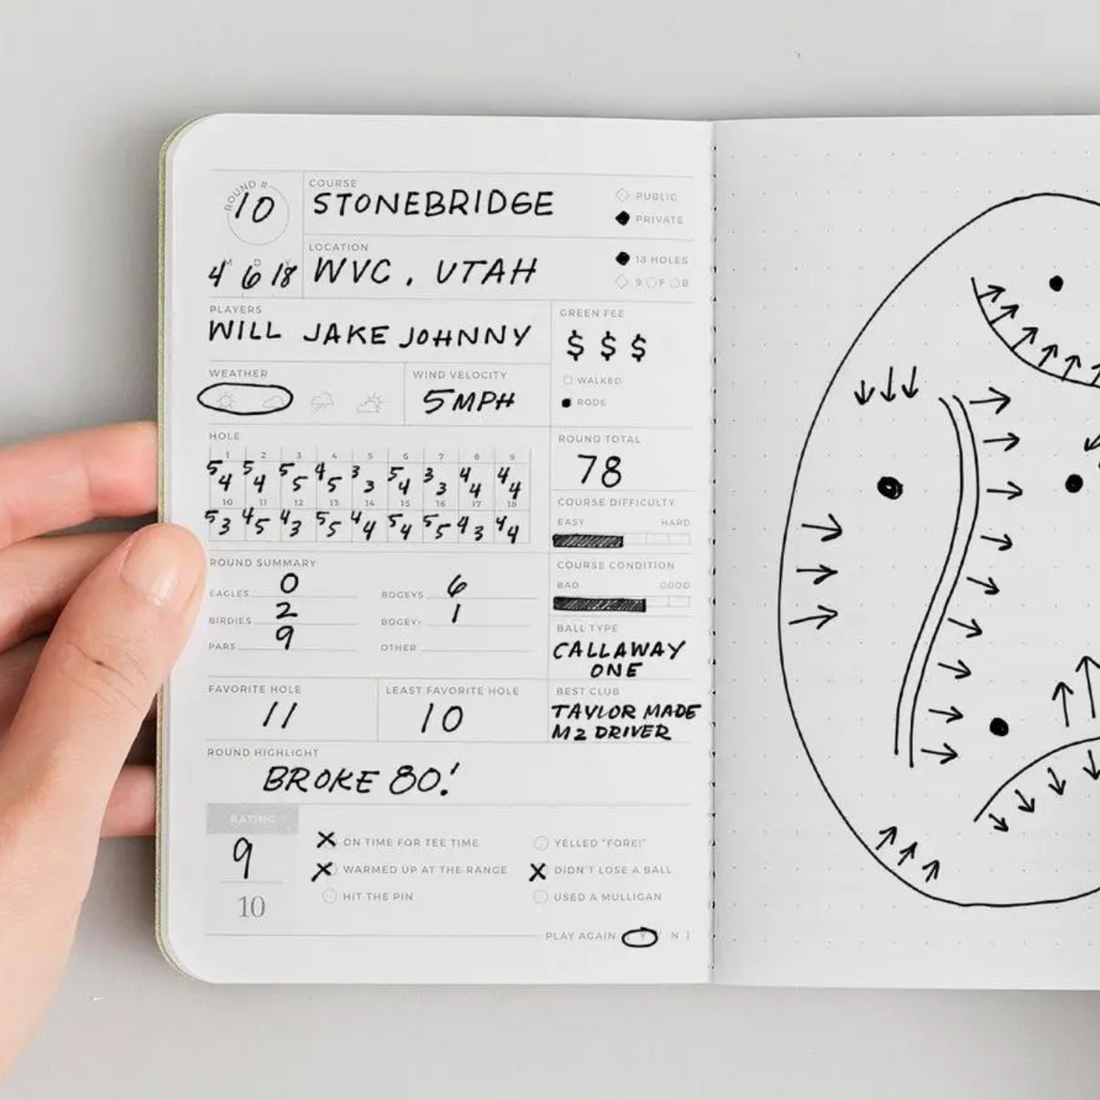 ROUND #
10
COURSE
STONEBRIDGE
PUBLIC
PRIVATE
M D Y
4 6 18
LOCATION
WVC, UTAH
18 HOLES
9 F B
PLAYERS
WILL JAKE JOHNNY
GREEN FEE
$ $ $
WALKED
RODE
WEATHER
WIND VELOCITY
5 MPH
HOLE
1 2 3 4 5 6 7 8 9
5 4 5 4 5 5 4 5 3 3 5 4 3 3 4 4 4 4
10 11 12 13 14 15 16 17 18
5 3 4 5 4 3 5 5 4 4 5 4 5 5 4 3 4 4
ROUND TOTAL
78
COURSE DIFFICULTY
EASY HARD
COURSE CONDITION
BAD GOOD
ROUND SUMMARY
EAGLES 0
BIRDIES 2
PARS 9
BOGEYS 6
BOGEY+ 1
OTHER
BALL TYPE
CALLAWAY
ONE
FAVORITE HOLE
11
LEAST FAVORITE HOLE
10
BEST CLUB
TAYLOR MADE
M2 DRIVER
ROUND HIGHLIGHT
BROKE 80!
RATING
9
10
X ON TIME FOR TEE TIME
X WARMED UP AT THE RANGE
HIT THE PIN
YELLED "FORE!"
X DIDN'T LOSE A BALL
USED A MULLIGAN
PLAY AGAIN [ Y / N ]